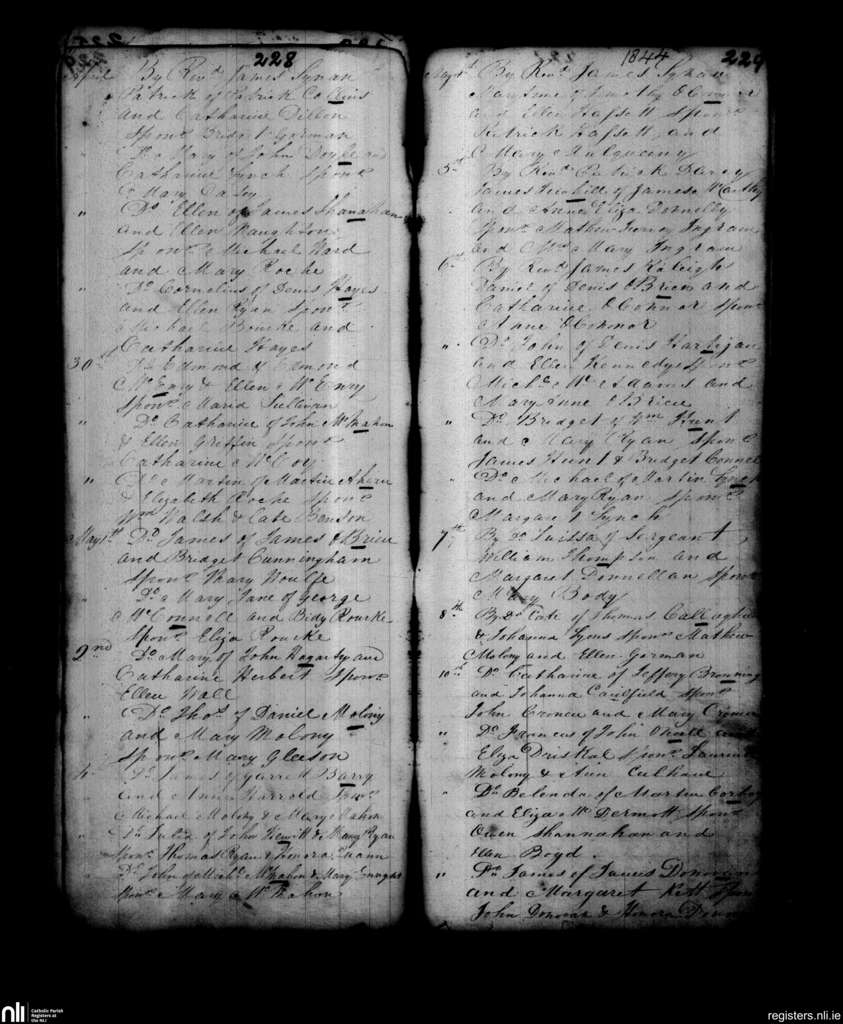 228
April By Revd James Synan
Patrick of Patrick Co
and Catharine Dillon
Sponrs Bridget Gorman
Do Mary of John Doyle and
Catharine Lynch Sponr
Mary Daly
" Do Ellen of James Shanahan
and Ellen Naughton
Sponrs Michael Ward
and Mary Roche
" Do Cornelius of Denis Hayes
and Ellen Ryan Sponrs
Michael Bourke and
Catharine Hayes
30 Do Edmond of Edmond
McEnry & Ellen McEnry
Sponr Maria Sullivan
" Do Catharine of John McMahon
& Ellen Griffin Sponr
Catharine McCoy
" Do Martin of Martin Ahern
& Elizabeth Roche Sponrs
Wm Walsh & Cate Benson
May 1st Do James of James OBrien
and Bridget Cunningham
Sponr Mary Woulfe
" Do Mary Jane of George
McConnell and Bidy Rourke
Sponr Eliza Rourke
2nd Do Mary of John Hogarty and
Catharine Herbert Sponr
Ellen Wall
" Do Thos of Daniel Molony
and Mary Molony
Sponr Mary Gleeson
4 Do James of Garrett Barry
and Anne Harrold Sponrs
Michael Molony & Mary
" Do Julia of John Hewitt & Mary Ryan
Sponrs Thomas Ryan & Honora
" Do John of Michl McMahon & Mary
Sponr Mary McMahon
1844
229
May 4th By Revd James Synan
of Timothy OConnor
and Ellen Hassett Sponrs
Patrick Hassett and
Mary Mulqueiny
5th By Revd Patrick Darcy
James of James McCarthy
and Anne Eliza Donnelly
Sponrs Mathew Ingram
and Mrs Mary Ingram
6th By Revd James Raleigh
Daniel of Denis OBrien and
Catharine OConnor Sponr
Anne OConnor
" Do John of Denis Hartigan
and Ellen Kennedy Sponrs
Michl McAdams and
Mary Anne OBrien
" Do Bridget of Wm Hunt
and Mary Ryan Sponrs
James Hunt & Bridget Connell
" Do Michael of Martin Lynch
and Mary Ryan Sponr
Margaret Lynch
7th By Do of Sergeant
William Thompson and
Margaret Donnellan Sponr
Mary Body
8th By Do Cate of Thomas Callaghan
& Johanna Lyons Sponrs Mathew
Molony and Ellen Gorman
10th Do Catharine of Jeffery Browning
and Johanna Caulfield Sponrs
John Cronen and Mary Cronen
" Do Frances of John ONeill and
Eliza Driskal Sponrs Laurence
Molony & Ann Culhane
" Do Belenda of Martin
and Eliza McDermott Sponrs
Owen Shannahan and
Ellen Boyd.
" Do James of James Donovan
and Margaret Kett Sponrs
John Donovan & Honora
nli Catholic Parish
Registers at
the NLI
registers.nli.ie